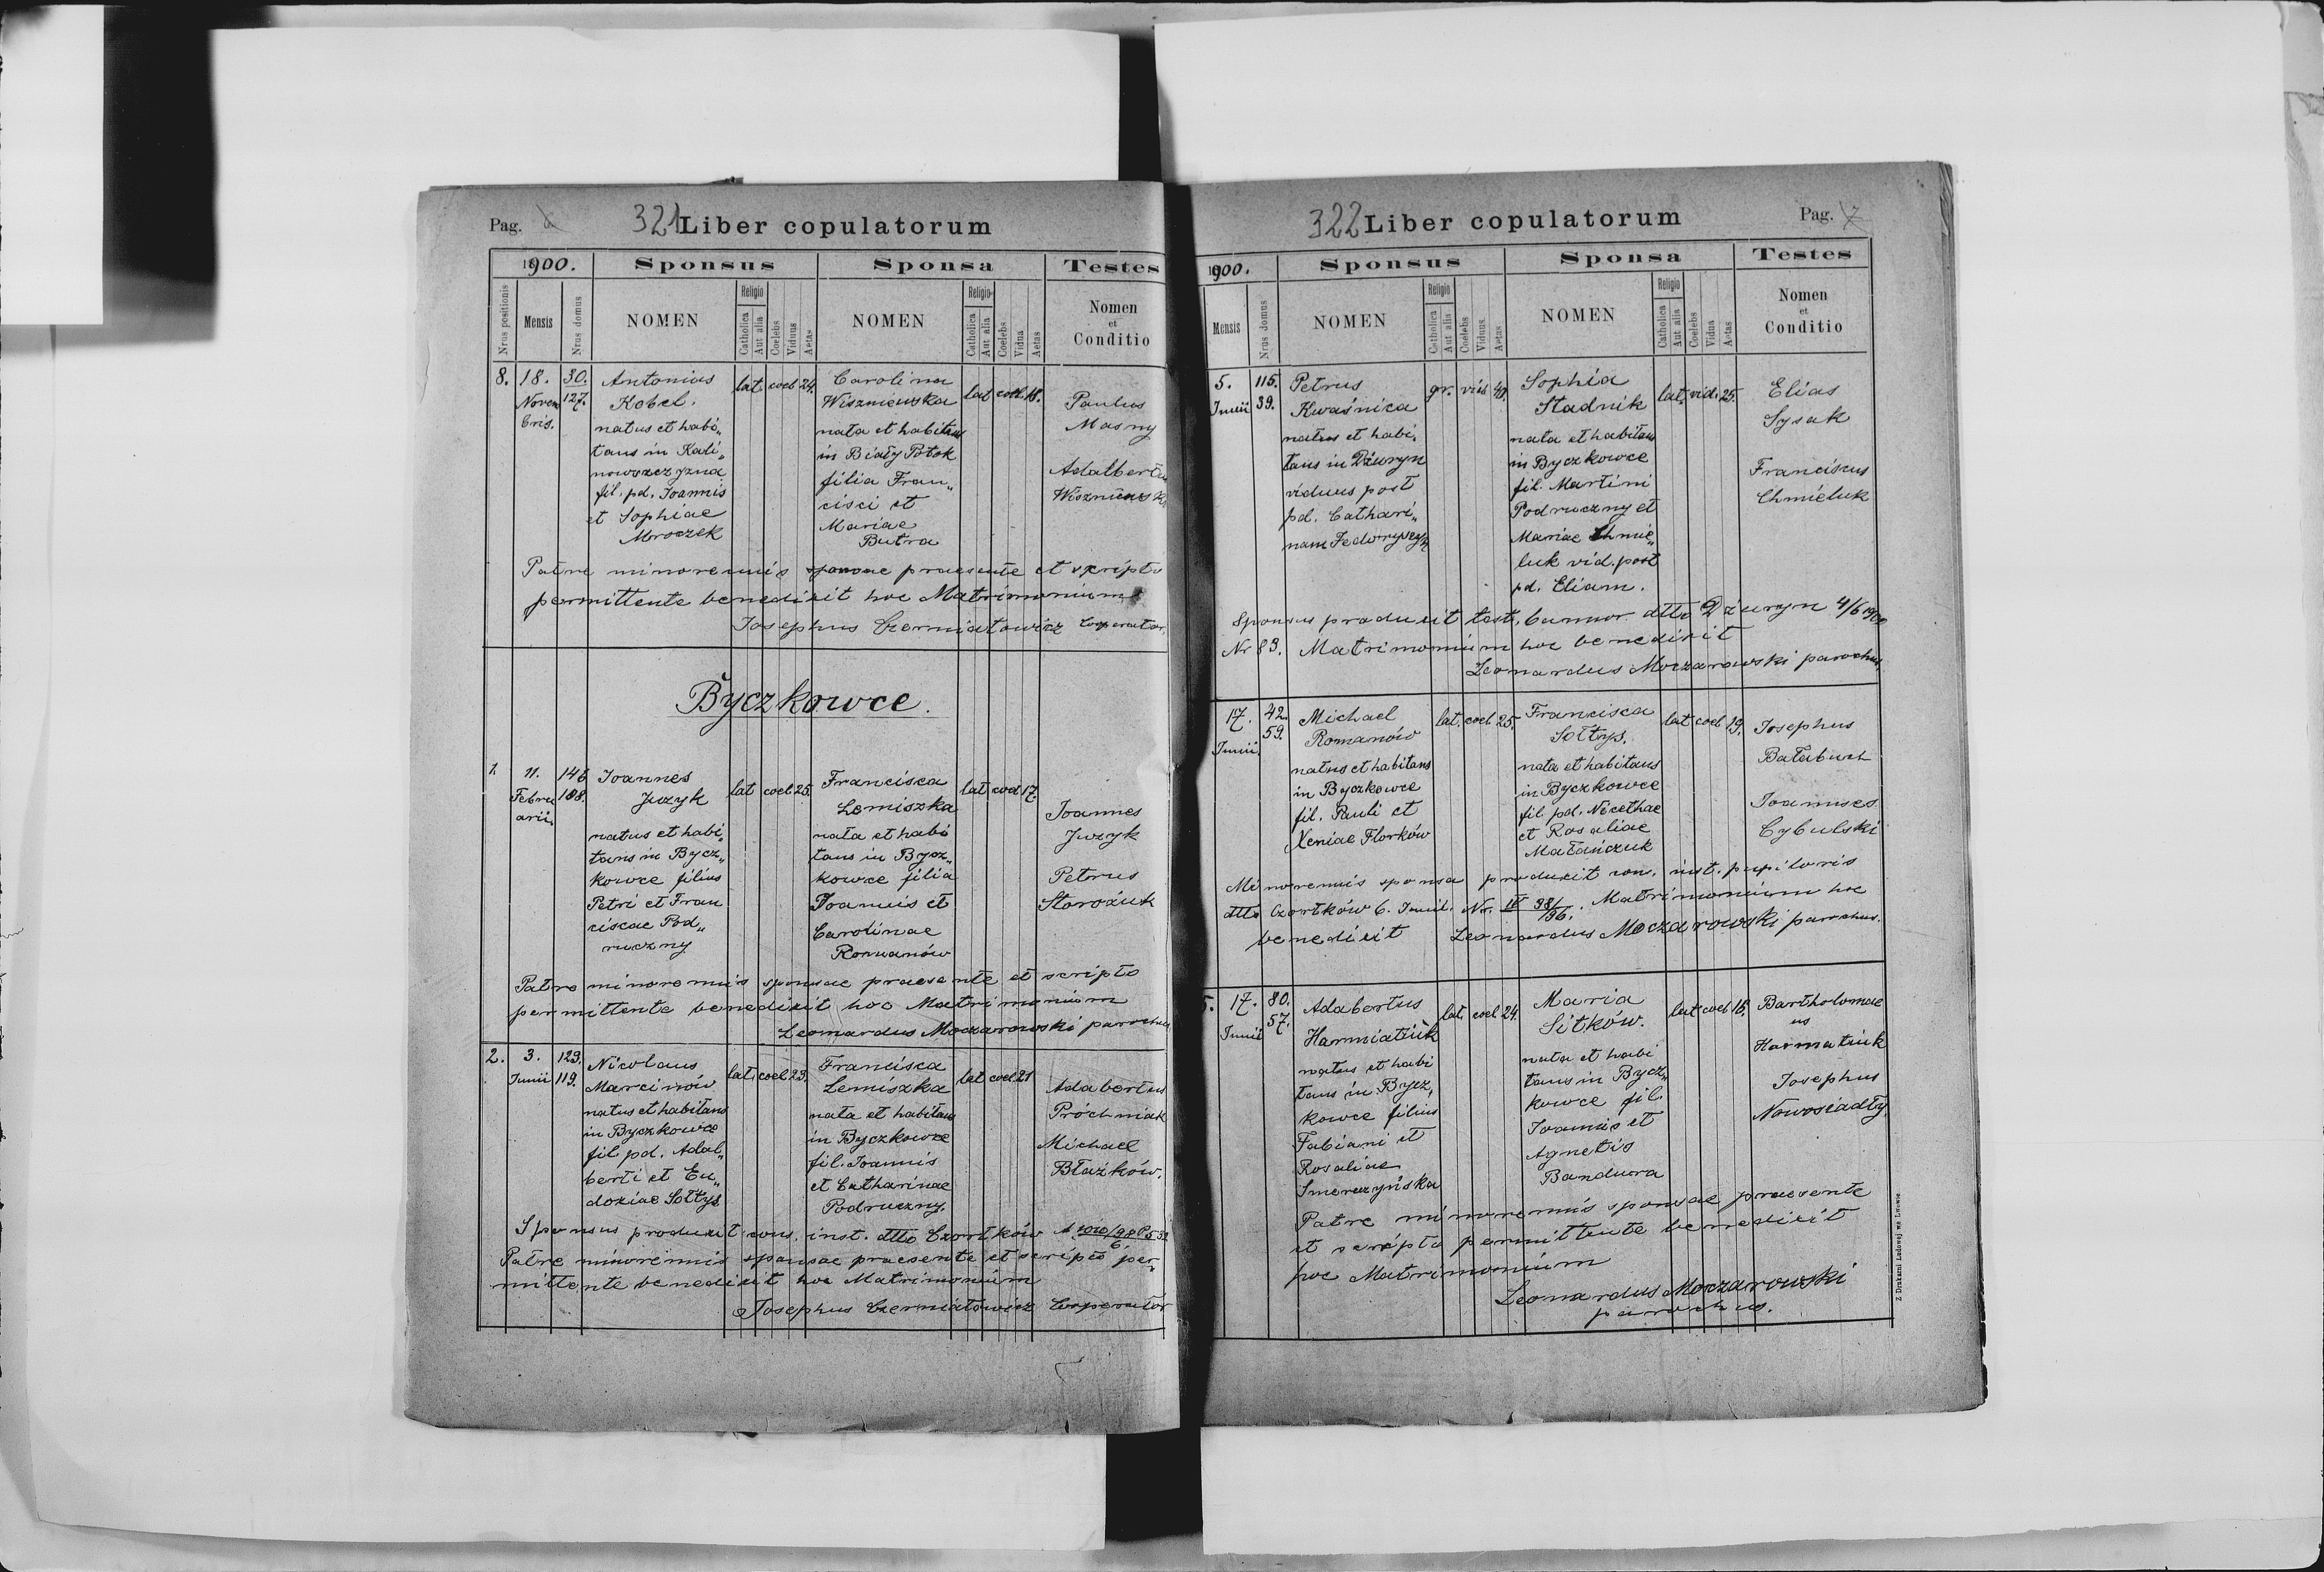 Pag.
321 Liber copulatorum
1900.
Sponsus
Sponsa
Testes
Nrus positionis
Mensis
Nrus domus
NOMEN
Religio
Catholica
Aut alia
Coelebs
Viduus
Aetas
NOMEN
Religio
Catholica
Aut alia
Coelebs
Vidua
Aetas
Nomen
et
Conditio
8.
18.
Novem
bris.
30.
127.
Antonius
Kobel.
natus et habi„
tans in Kali„
nowszczyzna
fil. pd. Joannis
et Sophiae
Mroczek
lat coel 24.
Carolina
Wiszniewska
nata et habitans
in Biały Potok
filia Fran„
cisci et
Mariae
Butra
lat coel 18.
Paulus
Masny
Adalbertus
Patre minorennis sponsae praesente et scripto
permittente benedixit hoc Matrimonium
Josephus Czerniatowicz Cooperator.
Byczkowce.
1.
11.
Febru
arii.
146
188.
Joannes
Juzyk
natus et habi„
tans in Bycz„
kowce filius
Petri et Fran
ciscae Pod„
ruczny
lat coel 25.
Francisca
Lemiszka
nata et habi
tans in Bycz„
kowce filia
Joannis et
Carolinae
Romanów
lat coel 17.
Joannes
Juzyk
Petrus
Starożuk
Patre minorennis sponsae praesente et scripto
permittente benedixit hoc Matrimonium
Leonardus Moczarowski parochus.
2.
3.
Junii
129.
119.
Nicolaus
Marcinów
natus et habitans
in Byczkowce
fil pd. Adal„
berti et Eu„
doxiae Sołtys
lat. coel 23.
Francisca
Lemiszka
nata et habitans
in Byczkowce
fil. Joannis
et Catharinae
Podruczny.
lat coel 21
Adabertus
Próchniak
Michael
Błazków.
Sponsus produxit cons. inst. dtto Czortków
Patre minorennis sponsae praesente et scripto per„
mittente benedixit hoc Matrimonium
Josephus Czerniatowicz Cooperator
322 Liber copulatorum
Pag. 7
1900.
Sponsus
Sponsa
Testes
Mensis
Nrus domus
NOMEN
Religio
Catholica
Aut alia
Coelebs
Viduus
Aetas
NOMEN
Religio
Catholica
Aut alia
Coelebs
Vidua
Aetas
Nomen
et
Conditio
5.
Junii
115.
39.
Petrus
Kwaśnica
natus et habi„
tans in Dżuryn
viduus post
pd. Cathari„
nam
gr. vid 40.
Sophia
Stadnik
nata et habitans
in Byczkowce
fil. Martini
Podruczny et
Mariae Chmie„
luk vid. post
pd. Eliam.
lat. vid. 25.
Elias
Sysak
Franciscus
Chmieluk
Sponsus produxit test. bannor dtto Dżuryn 4/6 1900
Nr 83. Matrimonium hoc benedixit
Leonardus Moczarowski parochus.
17.
Junii
42.
59.
Michael
Romanów
natus et habitans
in Byczkowce
fil. Pauli et
Xeniae Florków
lat. coel 25.
Francisca
Sołtys.
nata et habitans
in Byczkowce
fil pd. Nicethae
et Rosaliae
Matańczuk
lat coel 19.
Josephus
Bałabuch
Joannes
Cybulski
Minorennis sponsa produxit cons. inst. pupiloris
dtto Czortków 6. Junii. Nr. IV 38/96. Matrimonium hoc
benedixit Leonardus Moczarowski parochus.
5.
17.
Junii
80.
57.
Adabertus
Harmiatiuk
natus et habi
tans in Bycz„
kowce filius
Fabiani et
Rosaliae
Smerczyńska
lat. coel 24.
Maria
Sitków.
nata et habi
tans in Bycz„
kowce fil.
Joannis et
Agnetis
Bandura
lat coel 16.
Bartholomae
us
Harmatiuk
Josephus
Nowosiadły
Patre minorennis sponsae praesente
et scripto permittente benedixit
hoc Matrimonium
Leonardus Moczarowski
parochus.
Z Drukarni Ludowej we Lwowie